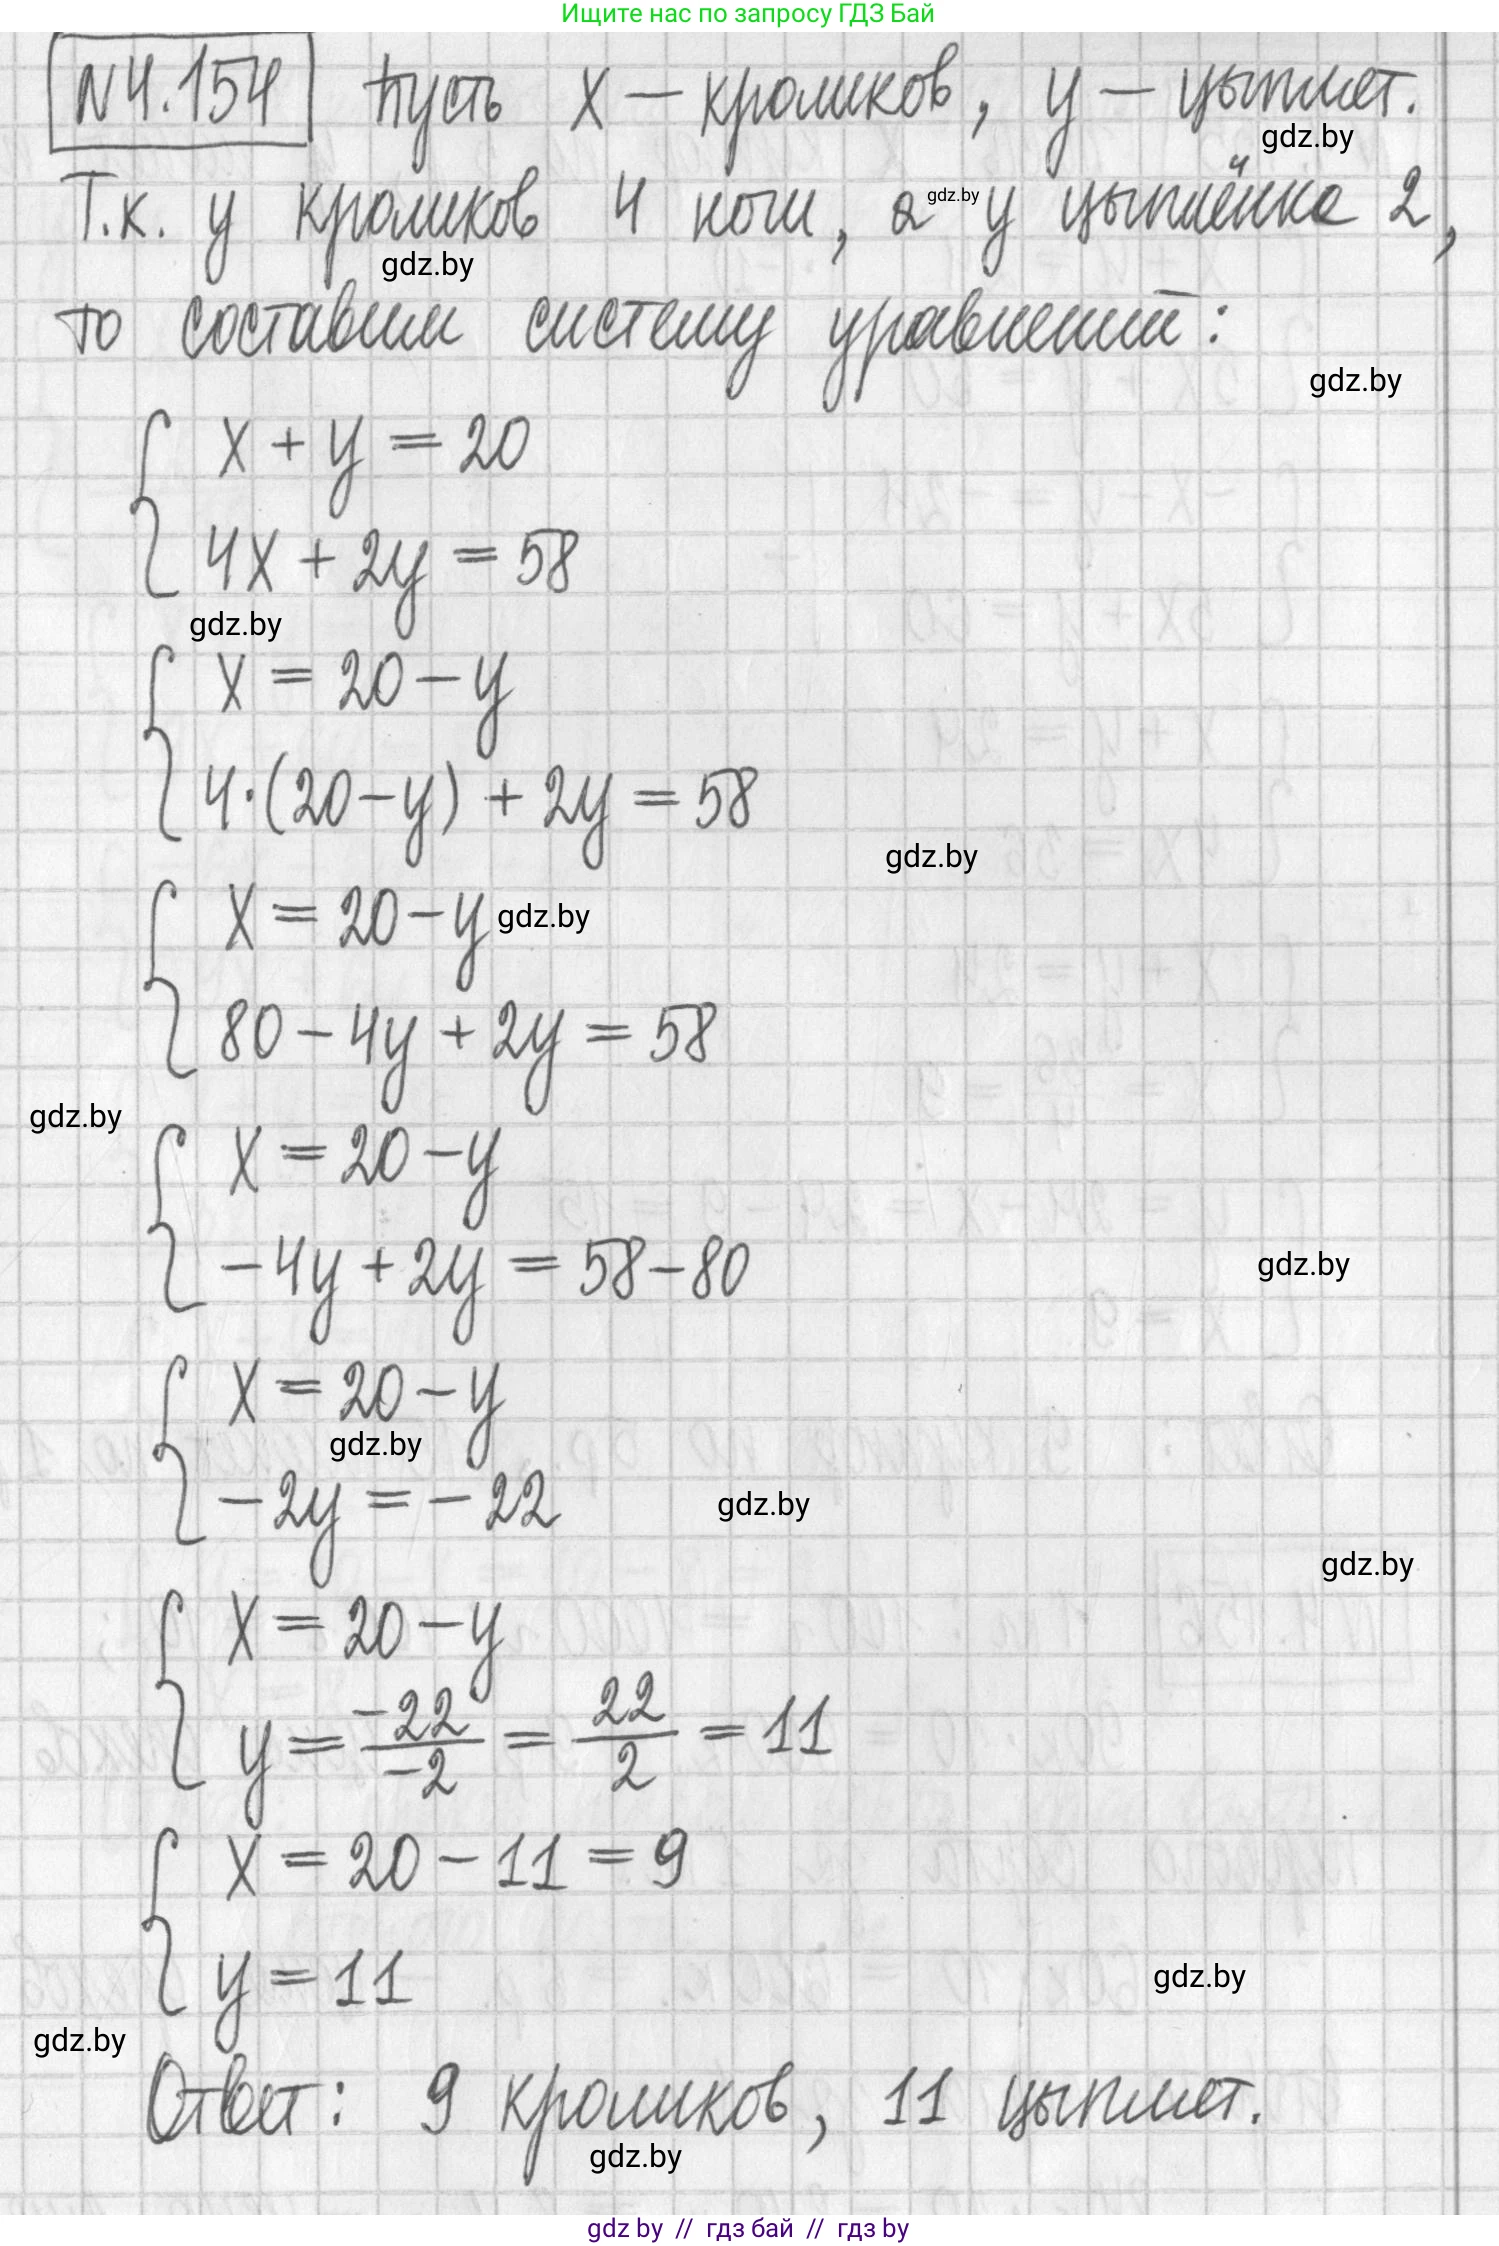 Ищите нас по запросу ГДЗ Бай
N4.154 Пусть x – кроликов, y – цыплят.
gdz.by
Т.к. у кроликов 4 ноги, а gdz.by у цыплёнка 2,
gdz.by
то составим систему уравнений:
gdz.by
x + y = 20
4x + 2y = 58
gdz.by
x = 20 – y
4·(20 – y) + 2y = 58
gdz.by
x = 20 – y gdz.by
80 – 4y + 2y = 58
gdz.by
x = 20 – y
–4y + 2y = 58 – 80
gdz.by
x = 20 – y
gdz.by
–2y = –22
gdz.by
gdz.by
x = 20 – y
y = –22/–2 = 22/2 = 11
x = 20 – 11 = 9
y = 11
gdz.by
gdz.by
Ответ: 9 кроликов, 11 цыплят.
gdz.by
gdz by // гдз бай // гдз by